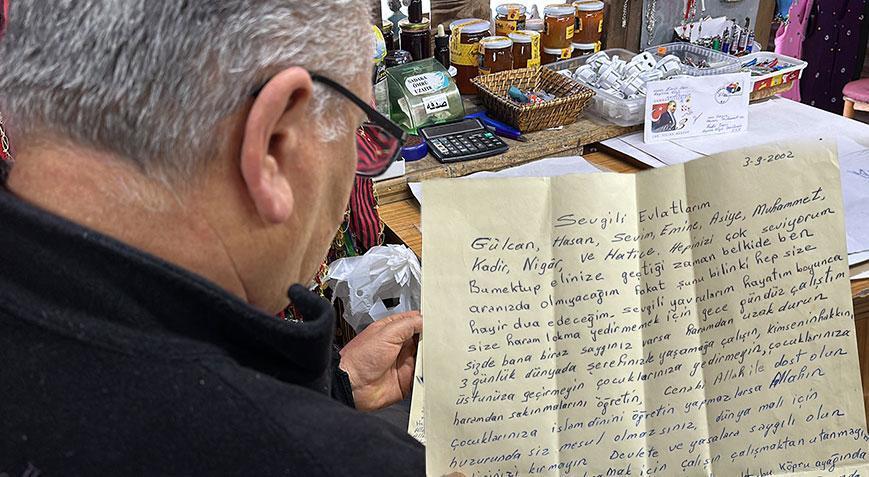 SADAKA
ÖMRÜ
UZATIR
صدقة
3-9-2002
Sevgili Evlatlarım
Gülcan, Hasan, Sevim, Emine, Asiye, Muhammet,
Kadir, Nigâr, ve Hatice. Hepinizi çok seviyorum
Bumektup elinize geçtiği zaman belkide ben
aranızda olmıyacağım fakat şunu bilinki hep size
hayir dua edeceğim. Sevgili yavrularım hayatım boyunca
size haram lokma yedirmemek için gece gündüz çalıştım
sizde bana biraz saygınız varsa haramdan uzak durun
3 günlük dünyada şerefinizle yaşamağa çalışın, kimsenin hakkın,
üstünüza geçirmeyin çocuklarınıza yedirmeyin, çocuklarınıza
haramdan sakınmalarını öğretin, Cenabı Allah ile dost olun
çocuklarınıza islâm dinini öğretin yapmazlarsa Allahın
huzurunda siz mesul olmazsınız, dünya malı için
kırmayın Devlete ve yasalara saygılı olun
için çalışın çalışmaktan utanmayın
bu köprü ayağında